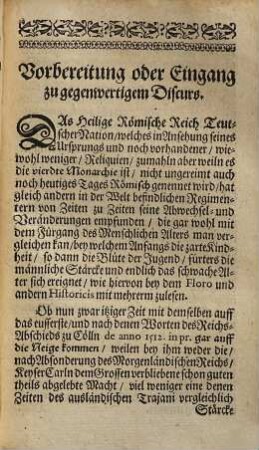 Vorbereitung oder Eingang
zu gegenwertigem Discurs.
DAs Heilige Römische Reich Teut-
scher Nation/welches in Ansehung seines
Ursprungs und noch vorhandener / wie-
wohl weniger/ Reliquien/ zumahln aber weiln es
die vierdte Monarchie ist/ nicht ungereimt auch
noch heutiges Tages Römisch genennet wird/hat
gleich andern in der Welt befindlichen Regimen-
tern von Zeiten zu Zeiten seine Abwechsel- und
Veränderungen empfunden / die gar wohl mit
dem Fürgang des Menschlichen Alters man ver-
gleichen kan/bey welchem Anfangs die zarte Kind-
heit/ so dann die Blüte der Jugend/ fürters die
männliche Stärcke und endlich das schwache Al-
ter sich ereignet / wie hiervon bey dem Floro und
andern Historicis mit mehrerm zulesen.
Ob nun zwar itziger Zeit mit demselben auff
das eusserste/und nach denen Worten des Reichs-
Abschieds zu Cölln de anno 1512. in pr. gar auff
die Neige kommen/ weilen bey ihm weder die/
nach Absonderung des Morgenländischen Reichs/
Keyser Carln dem Grossen verbliebene schon guten
theils abgelebte Macht/ viel weniger eine denen
Zeiten des ausländischen Trajani vergleichlich
Stärcke